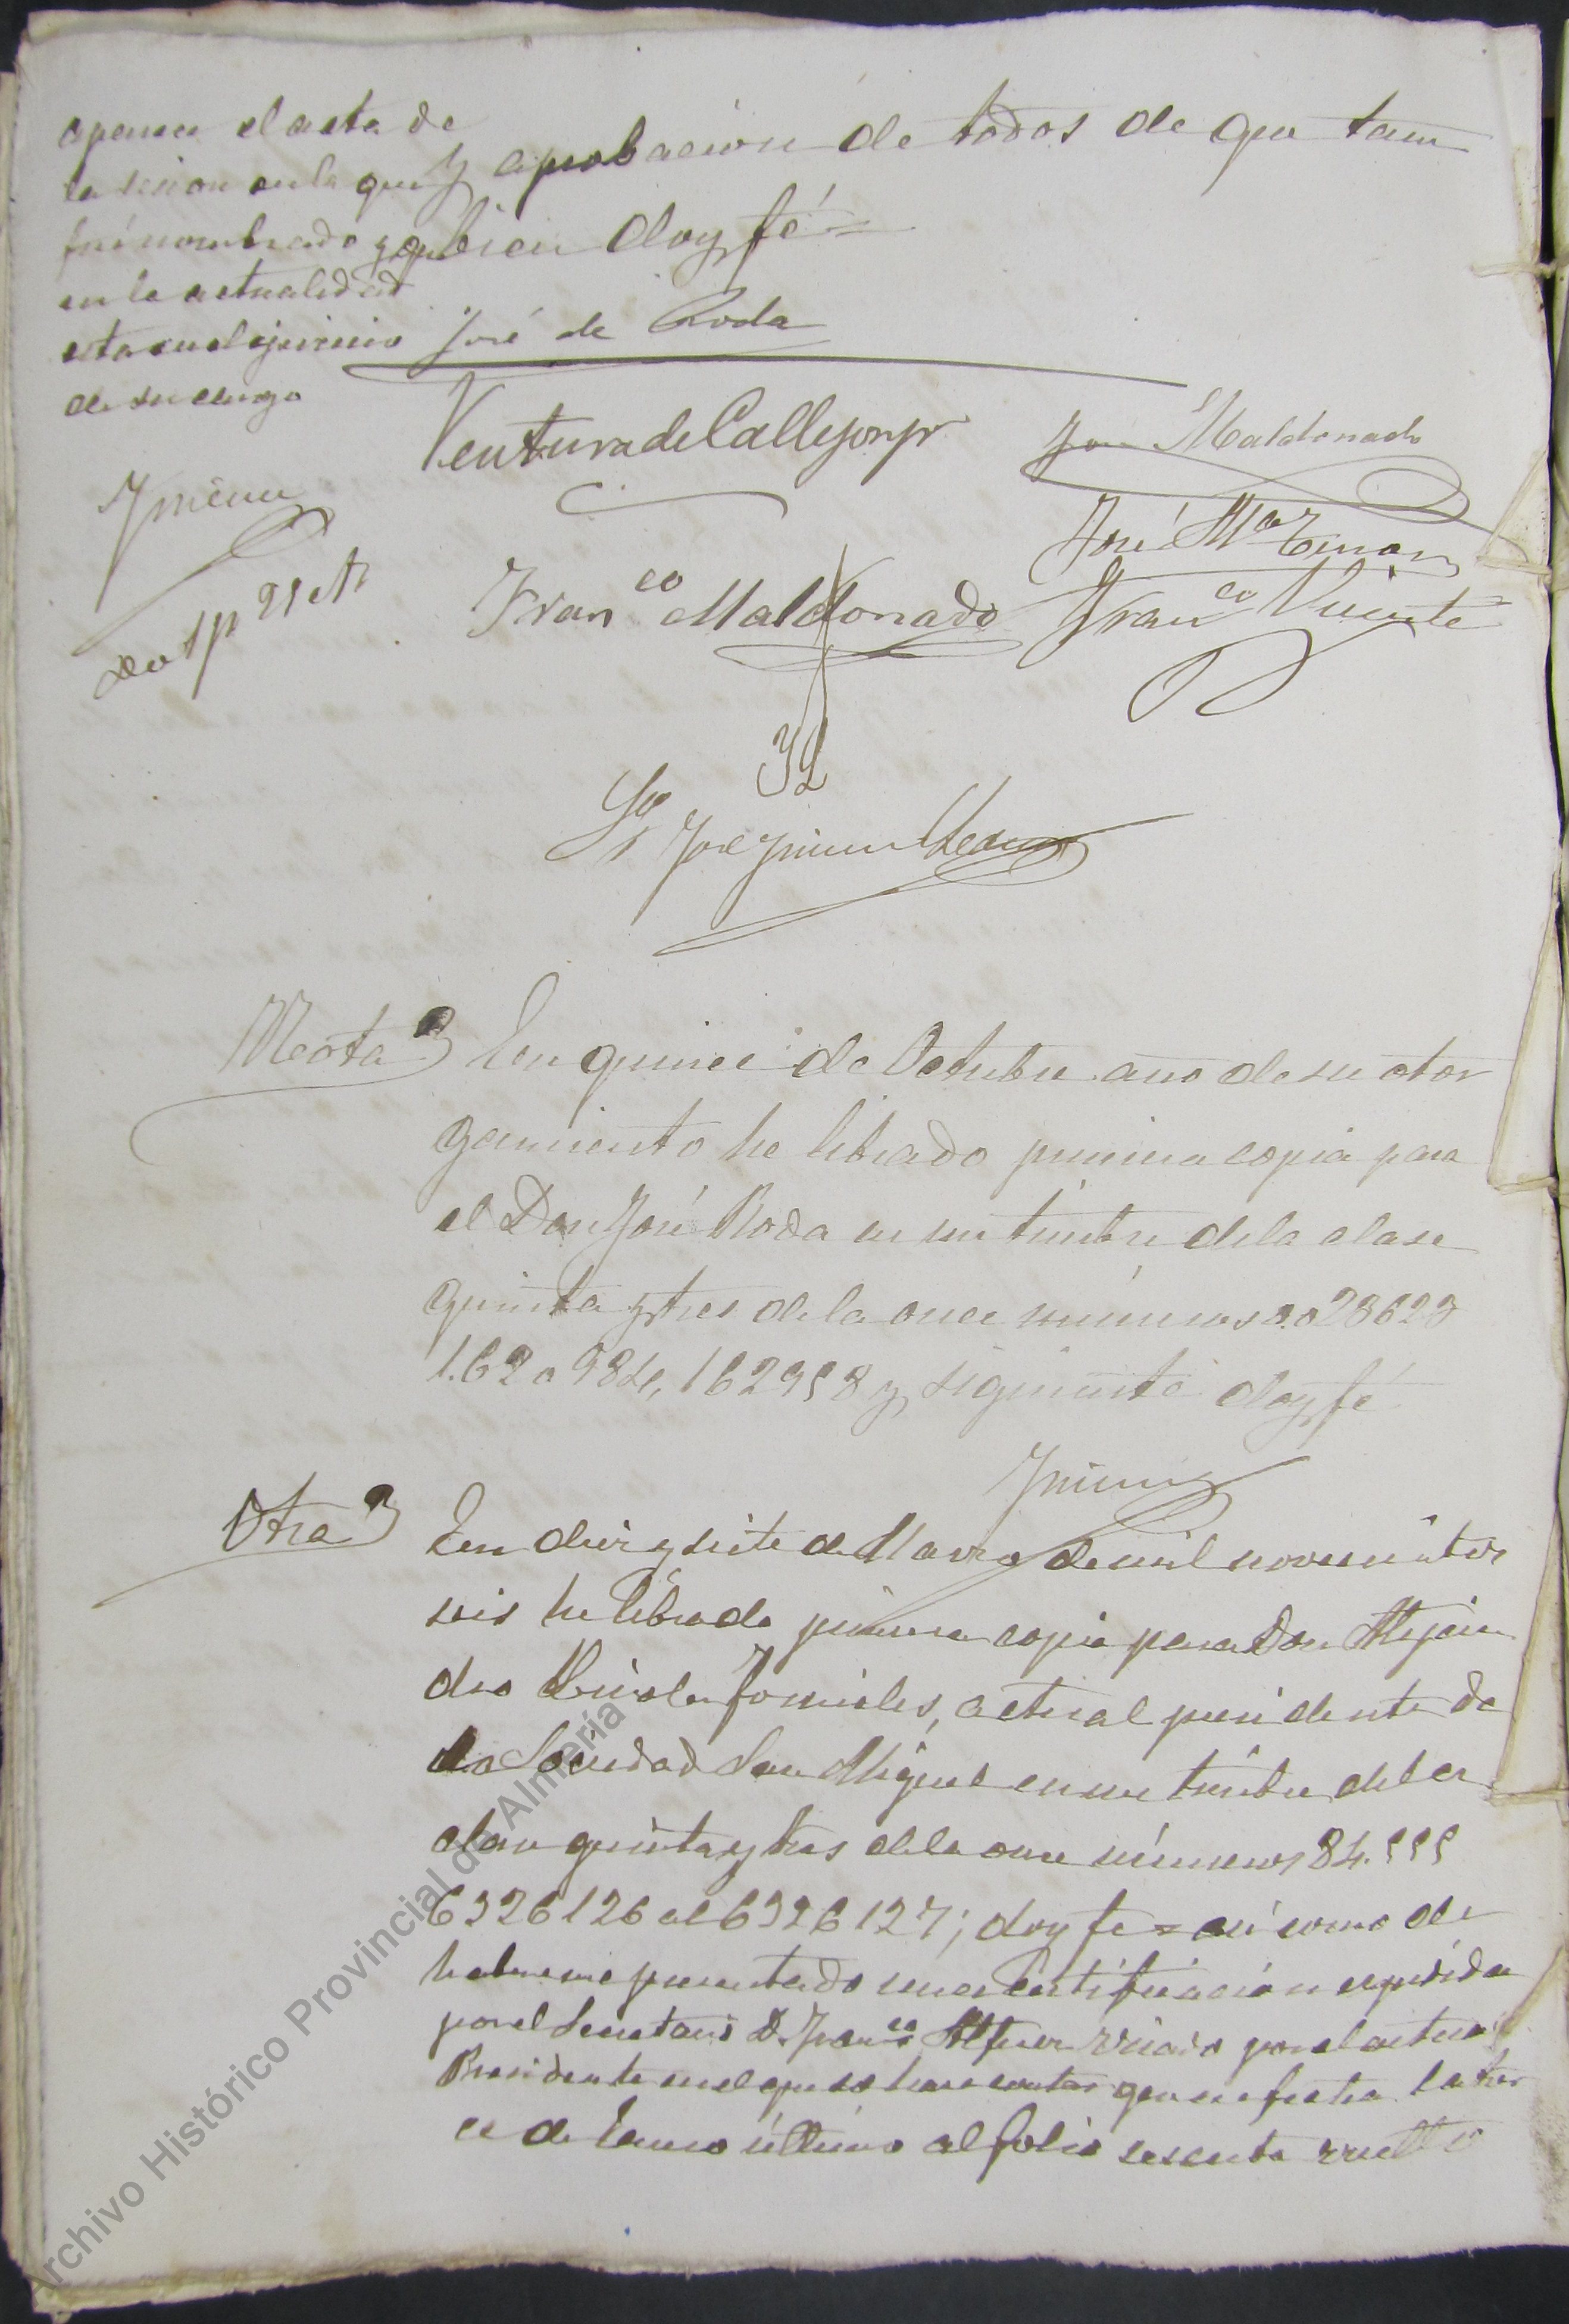 y aprobacion de todos de que tam
bien doy fé=
José de Roda
Ventura de Callejon
José Maldonado
José Mª
Franco Maldonado
Franco Vicente
José Jimenez
Nota En quince de Octubre año de su otor
gamiento he librado primera copia para
el Don José Roda en un timbre de la clase
quinta y tres de la once números
162958 y siguiente doy fé
Jimenez
Otra En diez y siete de Marzo de mil novecientos
seis he librado primera copia para Don Alejan
dro actual presidente de
la Sociedad San Miguel en un timbre de la
clase quinta y tres de la once números 84.555
6326126 al 6326127; doy fe= asi como de
haberseme presentado una certificacion expedida
por el Secretario D. Franco visada por el actual
Presidente en el que se hace constar que en fecha cator
ce de Enero último al folio sesenta vuelto
aparece el acta de
la sesion en la que
fué nombrado y que
en la actualidad
esta en el ejercicio
de su cargo
Jimenez
Archivo Histórico Provincial de Almería